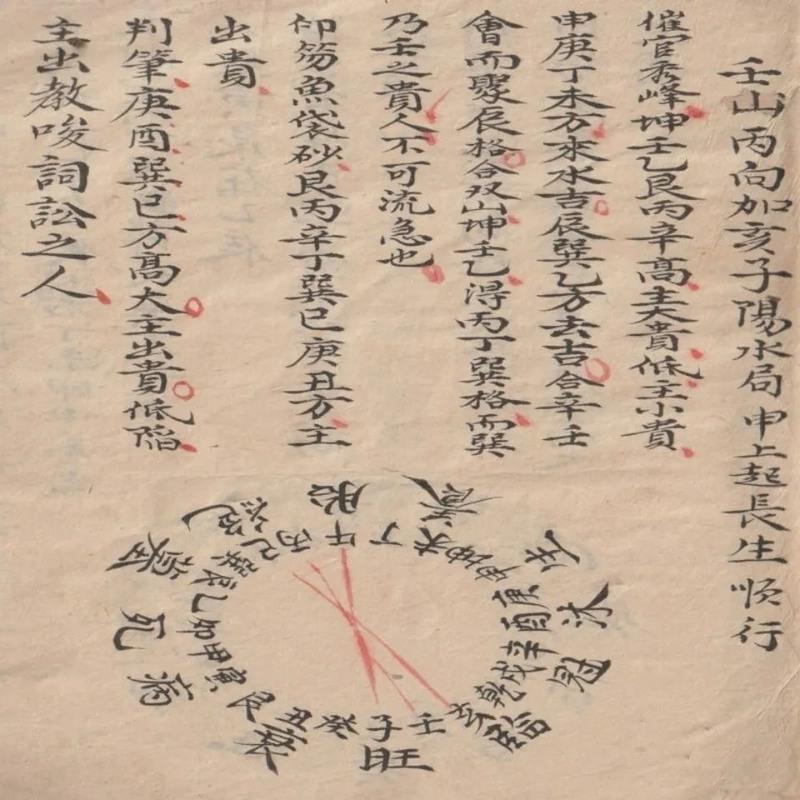 壬山丙向加亥子陽水局申上起長生順行
催官秀峰坤壬乙艮丙辛高主大貴低主小貴
申庚丁未方來水吉辰巽乙方去吉合辛壬
會而聚辰格合双山坤壬乙淂丙丁巽格而巽
乃壬之貴人不可流急也
仰笏魚袋砂艮丙辛丁巽巳庚丑方主
出貴
判筆庚酉巽巳方高大主出貴低陷
主出教唆詞訟之人
胎養生沐冠臨旺衰病死墓絕
午丁未坤申庚酉辛戌乾亥壬子癸丑艮寅甲卯乙辰巽巳丙